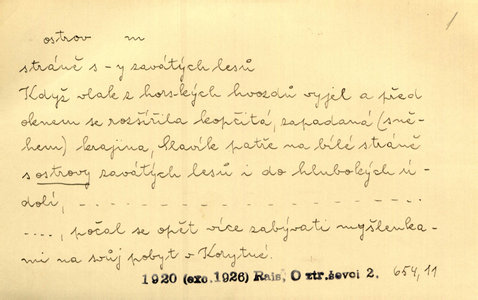 1
ostrov m
stráně s-y zavátých lesů
Když vlak z horských hvozdů vyjel a před
oknem se rozšířila kopčitá, zapadaná (sně-
hem) krajina, Havlík patře na bílé stráně
s ostrovy zavátých lesů i do hlubokých ú-
dolí, - - - - - - - - - - - - - - - - - - -
- - - -, počal se opět více zabývati myšlenka-
mi na svůj pobyt v Korytné.
1920 (exc. 1926) Rais, O ztr.ševci 2. 654,11